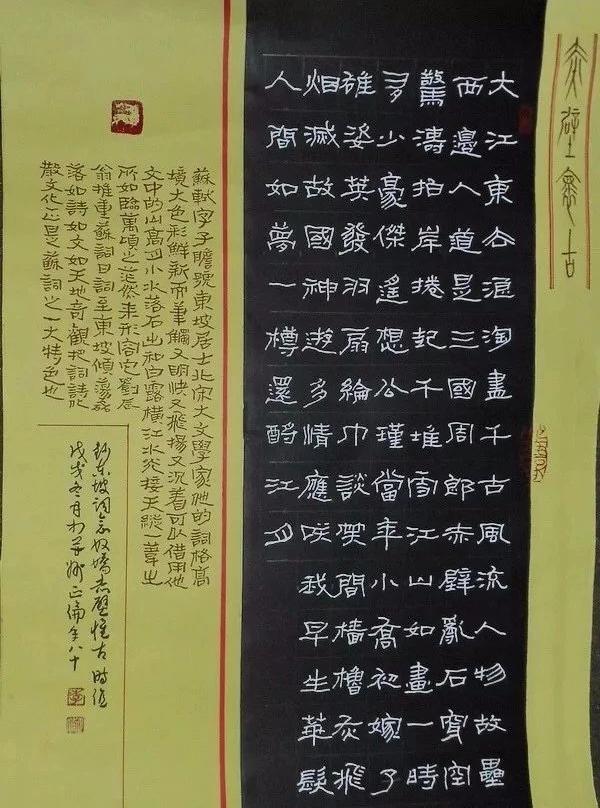 赤壁懷古
大江東去浪淘盡千古風流人物故壘
西邊人道是三國周郎赤壁亂石穿空
驚濤拍岸捲起千堆雪江山如畫一時
多少豪傑遙想公瑾當年小喬初嫁了
雄姿英發羽扇綸巾談笑間檣櫓灰飛
烟滅故國神遊多情應笑我早生華髮
人間如夢一樽還酹江月
蘇軾字子瞻號東坡居士北宋大文學家他的詞格高
境大色彩鮮新而筆觸又明快又飛揚又沉着可以借用他
文中的山高月小水落石出和白露橫江水光接天縱一葦之
所如臨萬頃之茫然来形容它劉辰
翁推重蘇詞曰詞至東坡傾蕩磊
落如詩如文如天地奇觀把詞詩化
散文化亦是蘇詞之一大特色也
鈔東坡詞念奴嬌赤壁懷古時值
戊戌冬月年八十